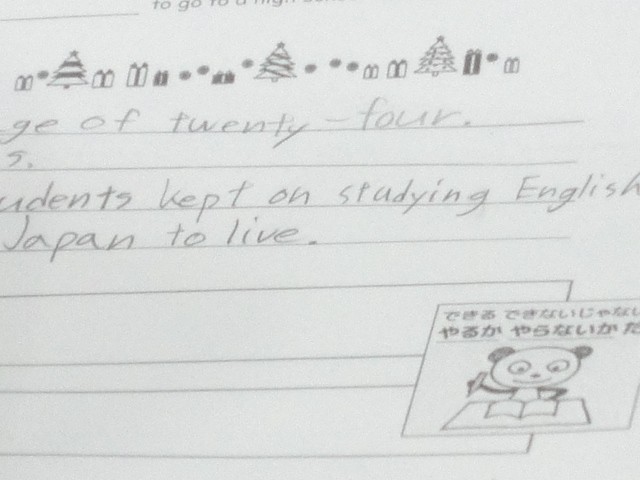 to go to a high
ge of twenty-four.
s.
udents kept on studying English
Japan to live.
できる できないじゃない
やるか やらないか だ